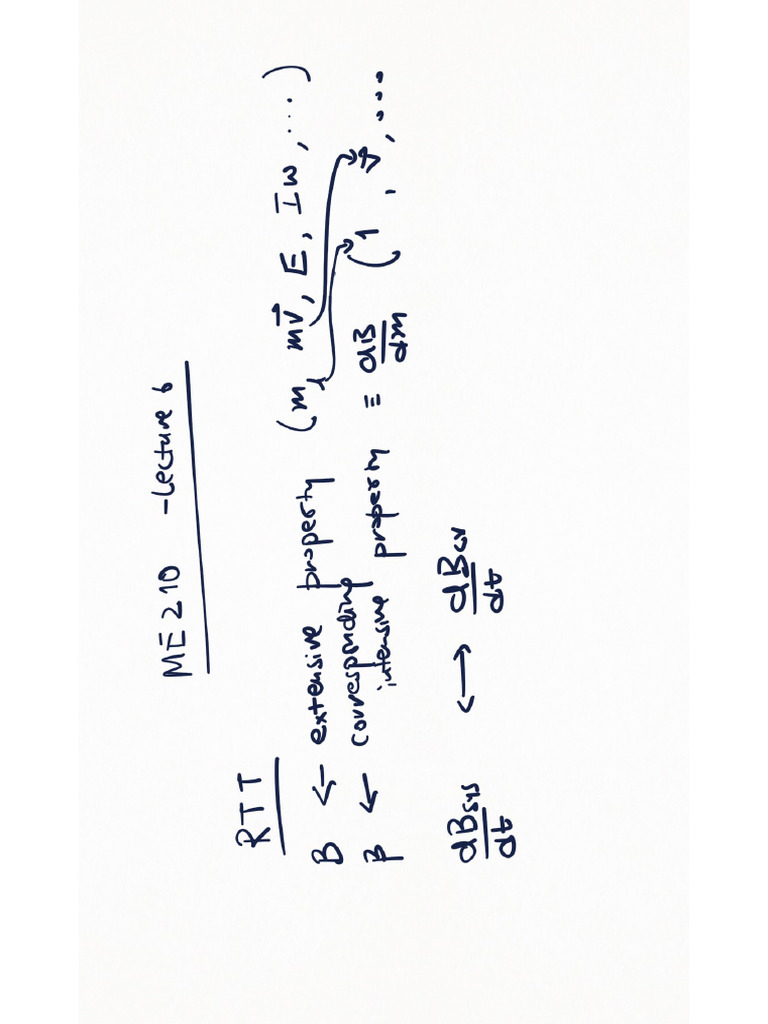 ME 210 - Lecture 6
RTT
B ← extensive property (m, mv⃗, E, Iω, ...)
β ← corresponding intensive property ≡ dB/dm (1, v⃗, ...)
dB_sys/dt ↔ dB_CV/dt